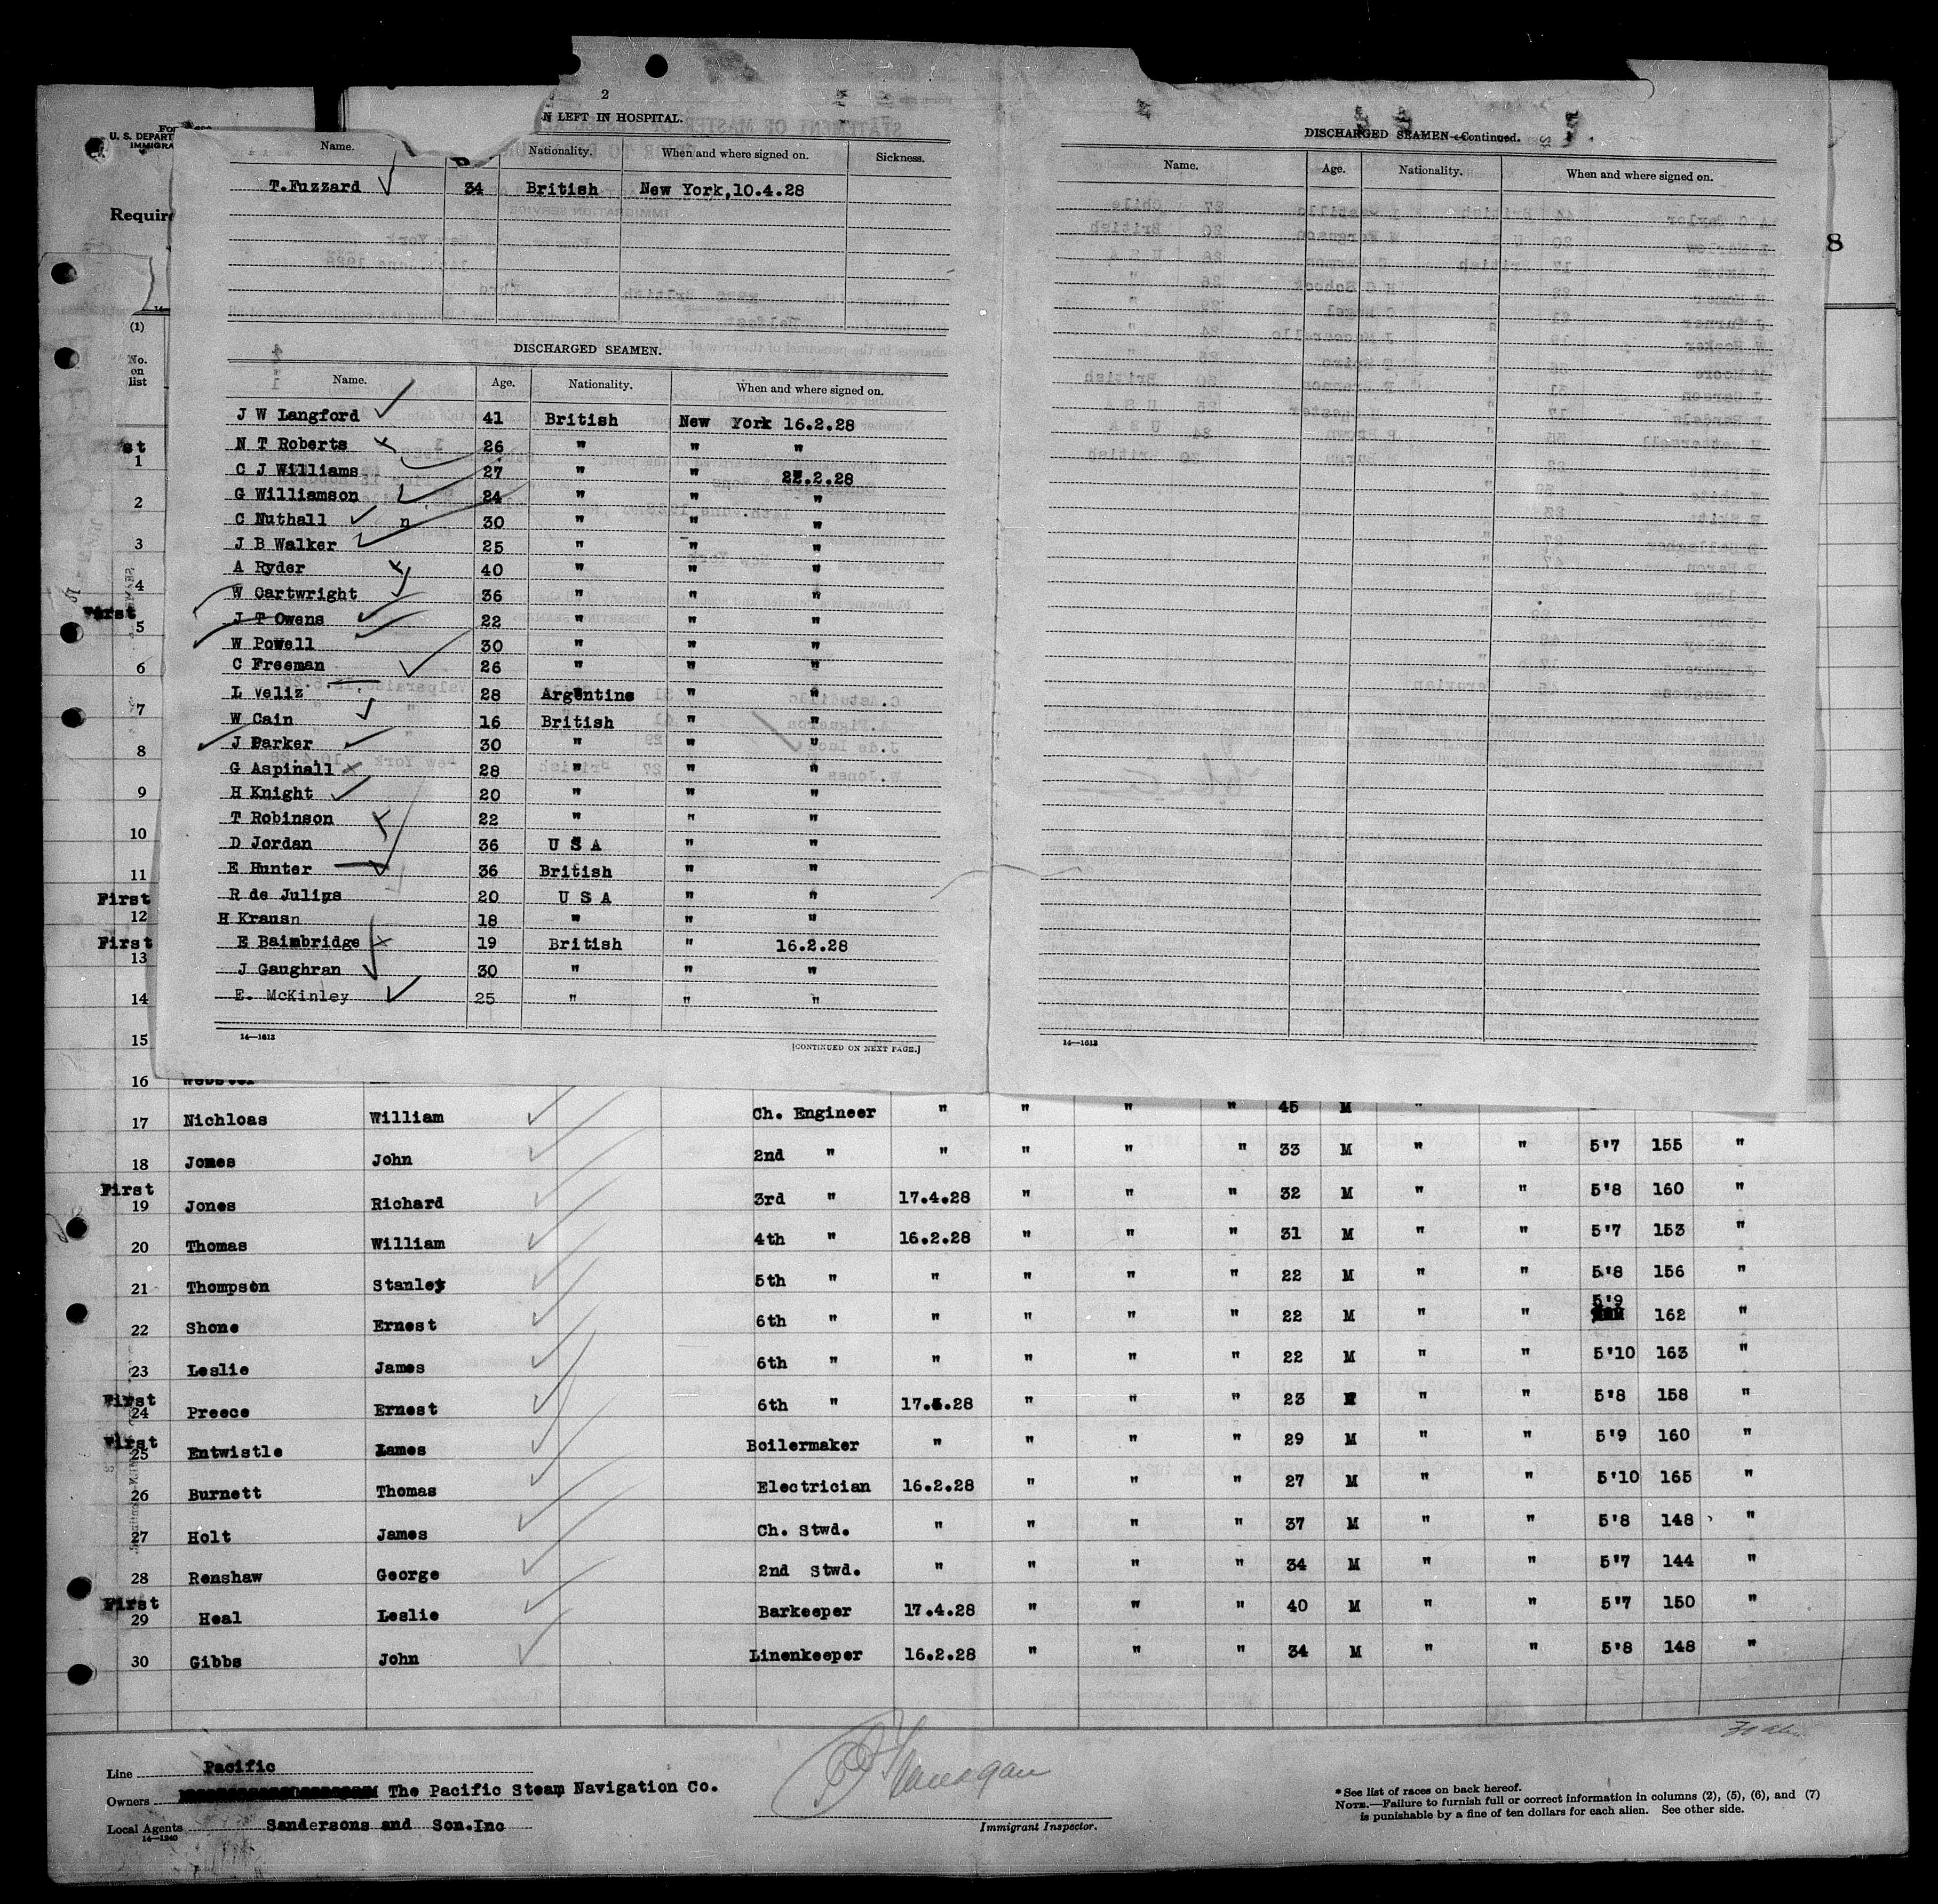 2
N LEFT IN HOSPITAL.
Name. Nationality. When and where signed on. Sickness.
T.Fuzzard 34 British New York,10.4.28
DISCHARGED SEAMEN.
Name. Age. Nationality. When and where signed on.
J W Langford 41 British New York 16.2.28
N T Roberts 26 " " "
C J Williams 27 " " 22.2.28
G Williamson 24 " " "
C Nuthall n 30 " " "
J B Walker 25 " " "
A Ryder 40 " " "
W Cartwright 36 " " "
J T Owens 22 " " "
W Powell 30 " " "
C Freeman 26 " " "
L Veliz 28 Argentine " "
W Cain 16 British " "
J Parker 30 " " "
G Aspinall 28 " " "
H Knight 20 " " "
T Robinson 22 " " "
D Jordan 36 U S A " "
E Hunter 36 British " "
R de Julips 20 U S A " "
H Krausn 18 " " "
E Baimbridge 19 British " 16.2.28
J Gaughran 30 " " "
E. McKinley 25 " " "
14—1613 [CONTINUED ON NEXT PAGE.]
DISCHARGED SEAMEN—Continued.
Name. Age. Nationality. When and where signed on.
14—1613
U. S. DEPART
IMMIGRA
Require
8
(1)
No.
on
list
st
1
2
3
4
First
5
6
7
8
9
10
11
First
12
First
13
14
15
16 Webster
17 Nichloas William Ch. Engineer " " " " 45 M "
18 Jones John 2nd " " " " " 33 M " " 5'7 155 "
First
19 Jones Richard 3rd " 17.4.28 " " " 32 M " " 5'8 160 "
20 Thomas William 4th " 16.2.28 " " " 31 M " " 5'7 153 "
21 Thompson Stanley 5th " " " " " 22 M " " 5'8 156 "
22 Shone Ernest 6th " " " " " 22 M " " 5'9 162 "
23 Leslie James 6th " " " " " 22 M " " 5'10 163 "
First
24 Preece Ernest 6th " 17.4.28 " " " 23 M " " 5'8 158 "
First
25 Entwistle James Boilermaker " " " " 29 M " " 5'9 160 "
26 Burnett Thomas Electrician 16.2.28 " " " 27 M " " 5'10 165 "
27 Holt James Ch. Stwd. " " " " 37 M " " 5'8 148 "
28 Renshaw George 2nd Stwd. " " " " 34 M " " 5'7 144 "
First
29 Heal Leslie Barkeeper 17.4.28 " " " 40 M " " 5'7 150 "
30 Gibbs John Linenkeeper 16.2.28 " " " 34 M " " 5'8 148 "
Line Pacific
Owners The Pacific Steam Navigation Co.
Local Agents Sandersons and Son.Inc
14—1240
Immigrant Inspector.
*See list of races on back hereof.
NOTE.—Failure to furnish full or correct information in columns (2), (5), (6), and (7)
is punishable by a fine of ten dollars for each alien. See other side.